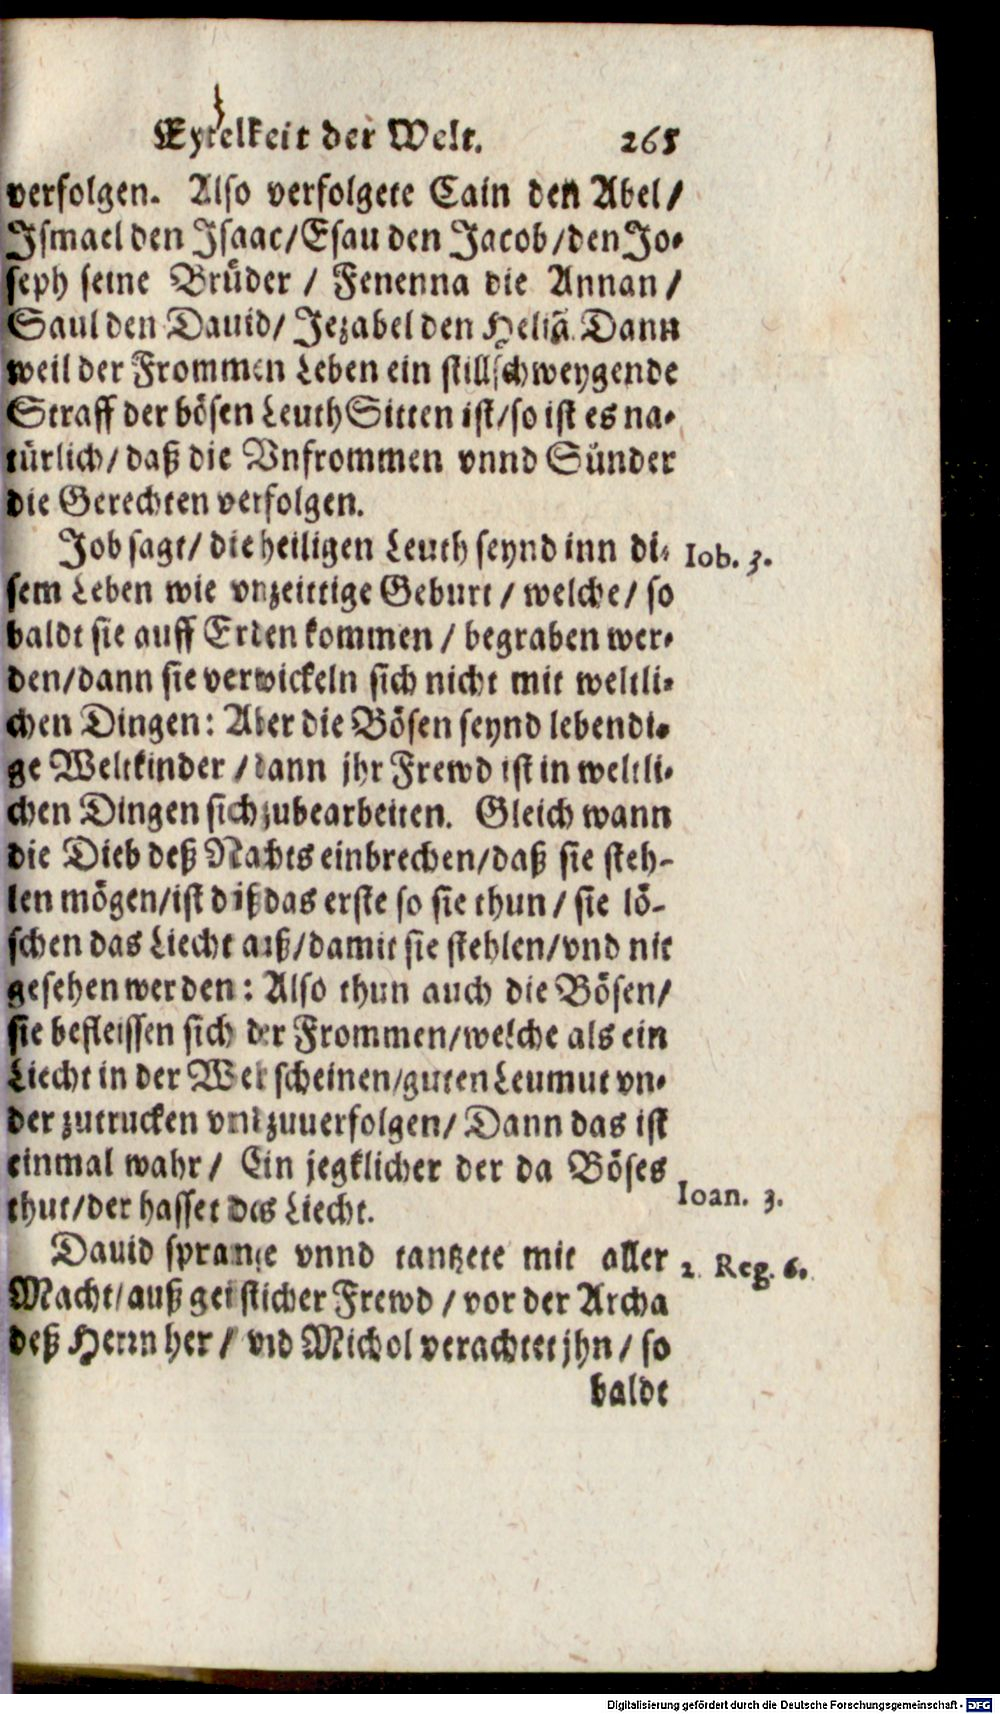 Eytelkeit der Welt. 265
verfolgen. Also verfolgete Cain den Abel/
Ismael den Isaac/Esau den Jacob/den Jo-
seph seine Brüder / Fenenna die Annan /
Saul den Dauid/ Jezabel den Heliā. Dann
weil der Frommen Leben ein stillschweygende
Straff der bösen Leuth Sitten ist/so ist es na-
türlich/ daß die Vnfrommen vnnd Sünder
die Gerechten verfolgen.
Job sagt/ die heiligen Leuth seynd inn di- Iob. 3.
sem Leben wie vnzeittige Geburt / welche/ so
baldt sie auff Erden kommen / begraben wer-
den/dann sie verwickeln sich nicht mit weltli-
chen Dingen: Aber die Bösen seynd lebendi-
ge Weltkinder /dann jhr Frewd ist in weltli-
chen Dingen sich zubearbeiten. Gleich wann
die Dieb deß Nachts einbrechen/daß sie steh-
len mögen/ist diß das erste so sie thun / sie lö-
schen das Liecht auß/damit sie stehlen/vnd nit
gesehen werden: Also thun auch die Bösen/
sie befleissen sich der Frommen/welche als ein
Liecht in der Welt scheinen/guten Leumut vn-
der zutrucken vnd zuuerfolgen/ Dann das ist
einmal wahr / Ein jegklicher der da Böses
thut/der hasset das Liecht. Ioan. 3.
Dauid sprange vnnd tantzete mit aller 2. Reg. 6.
Macht/auß geistlicher Frewd / vor der Archa
deß Herrn her / vnd Michol verachtet jhn / so
baldt
Digitalisierung gefördert durch die Deutsche Forschungsgemeinschaft - DFG